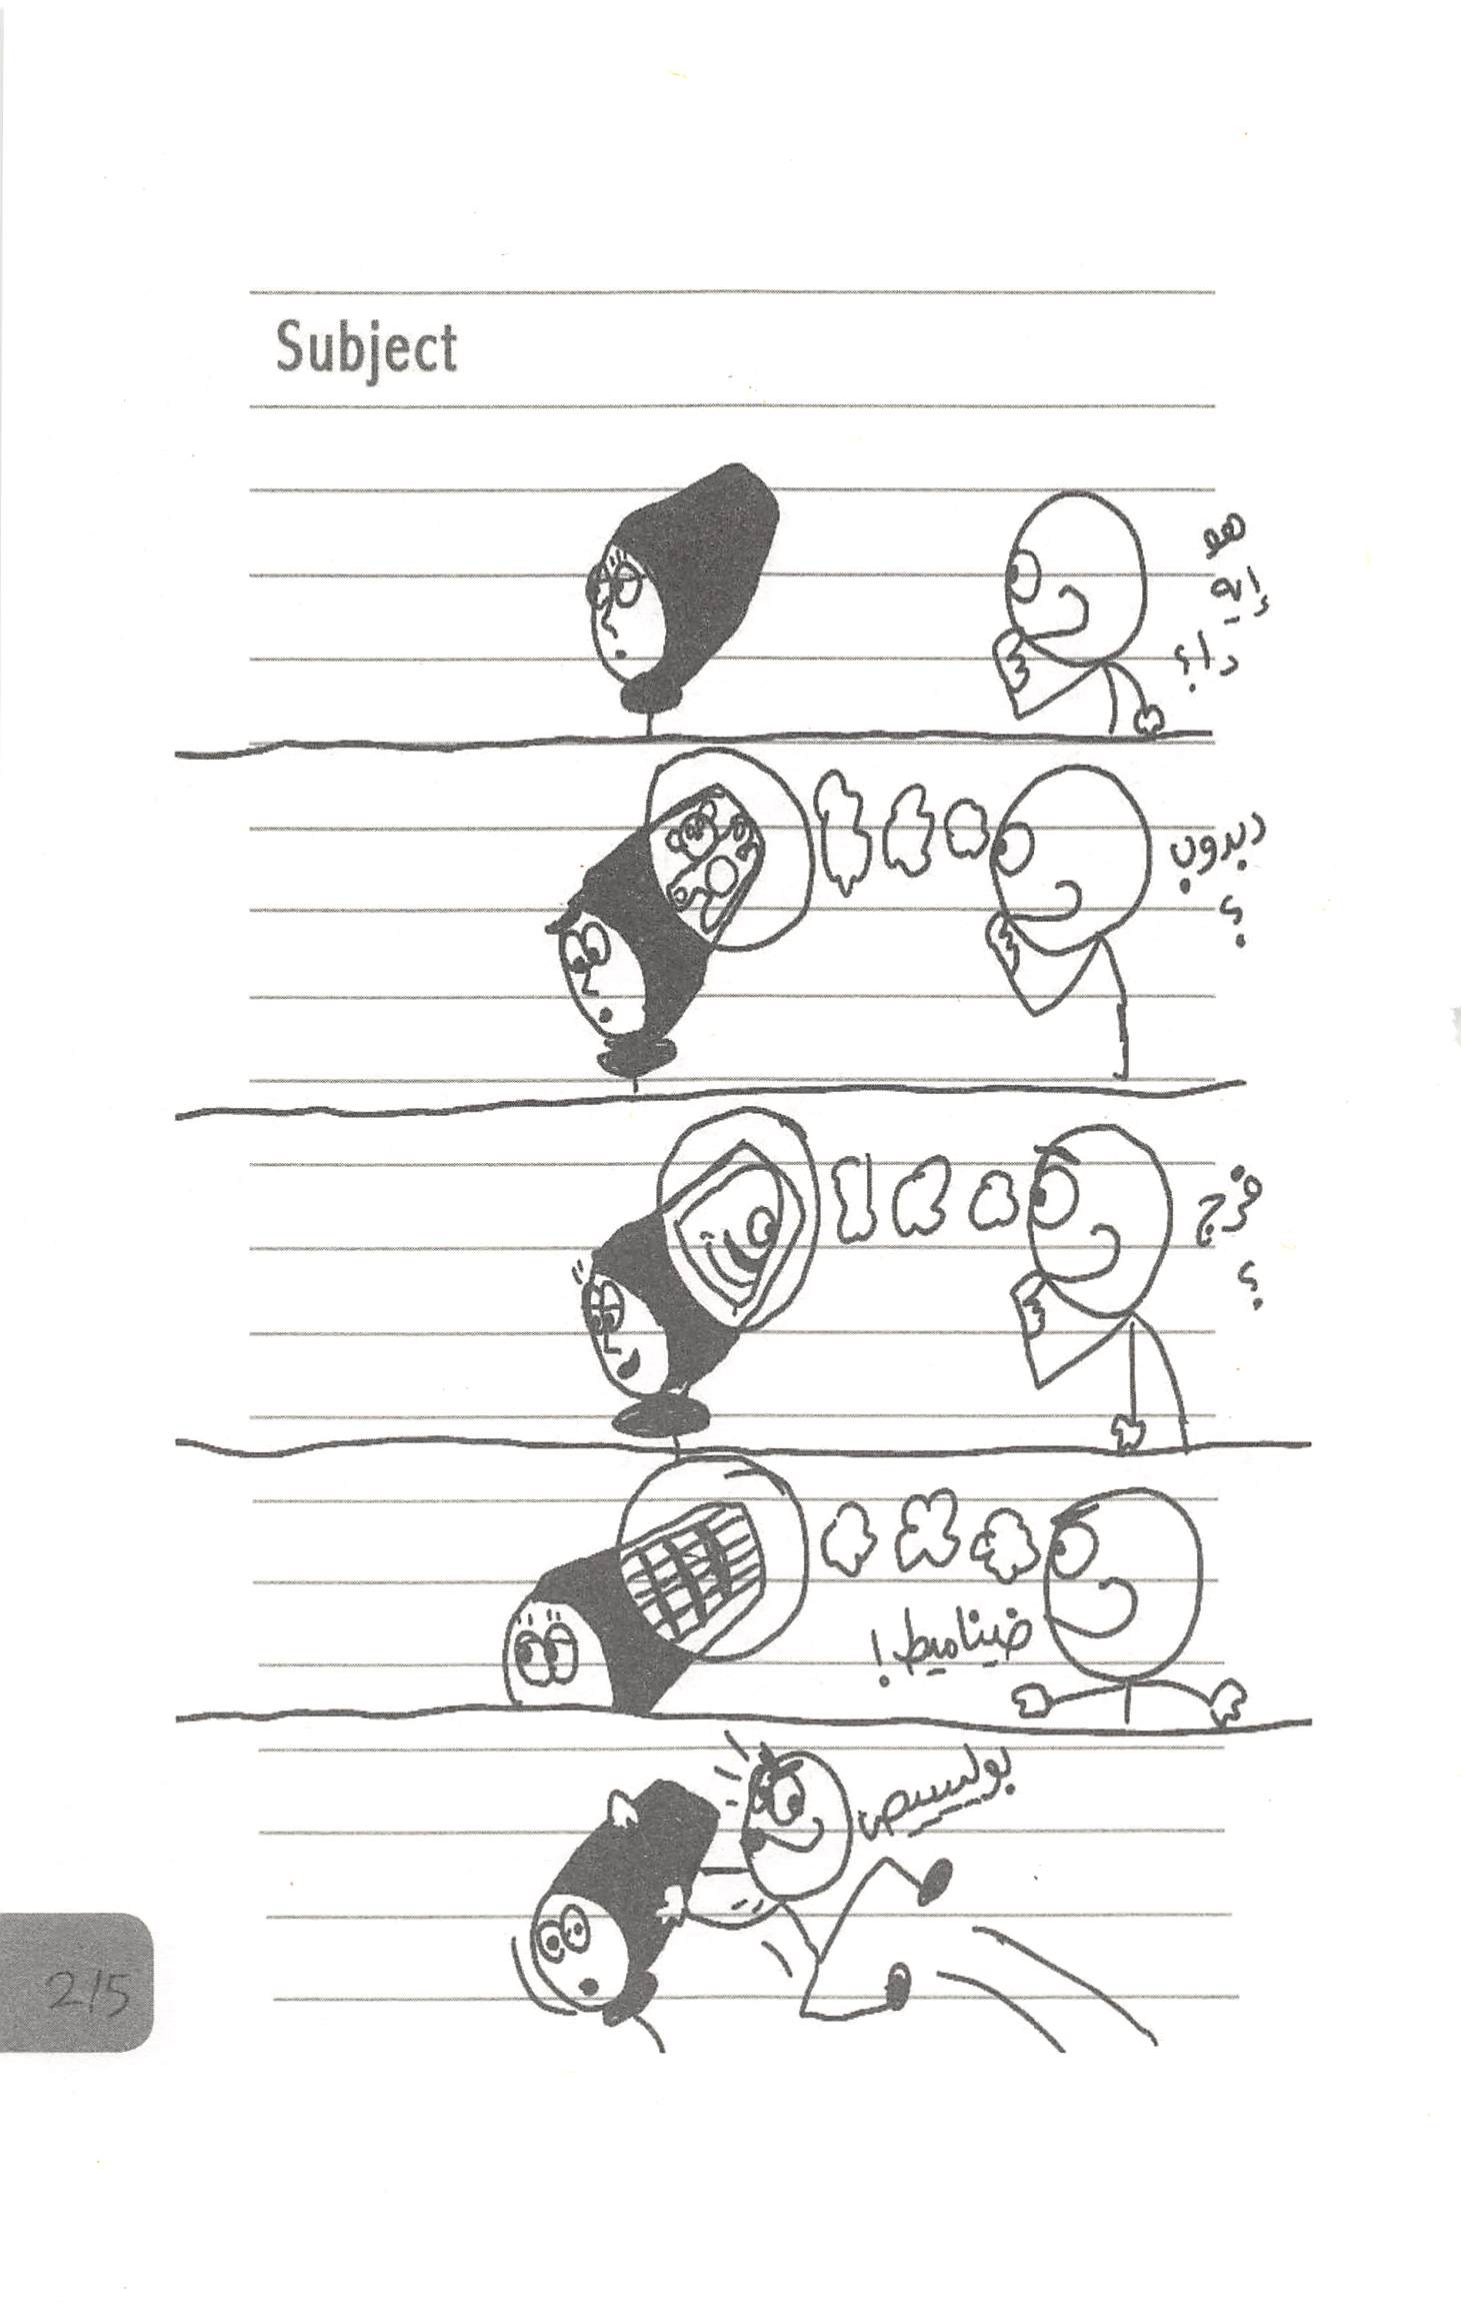 Subject
هو
إيه
دا؟
دبدوب
؟
فرخ
؟
ضيناميط!
بوليييص
215